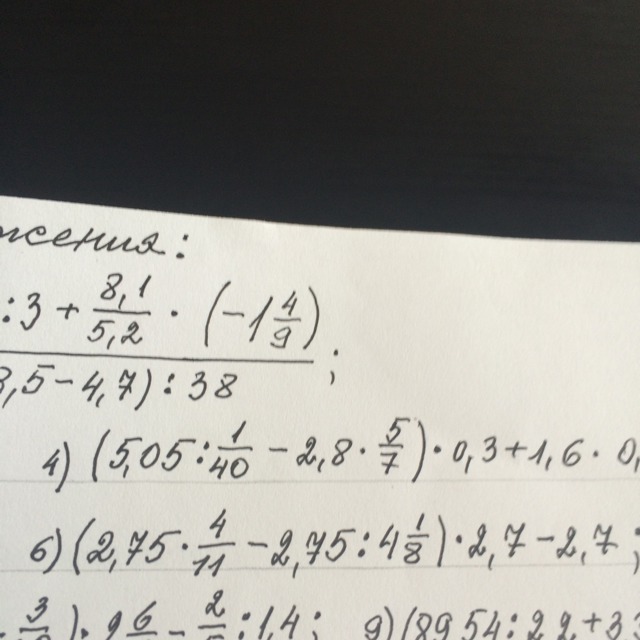 жения:
:3 + 8,1/5,2 · (-1 4/9)
;
8,5-4,7):38
4) (5,05:1/40 - 2,8·5/7)·0,3+1,6·0,
6) (2,75·4/11 - 2,75:4 1/8)·2,7-2,7;
:1,4; 9)(89,54:2,2+3